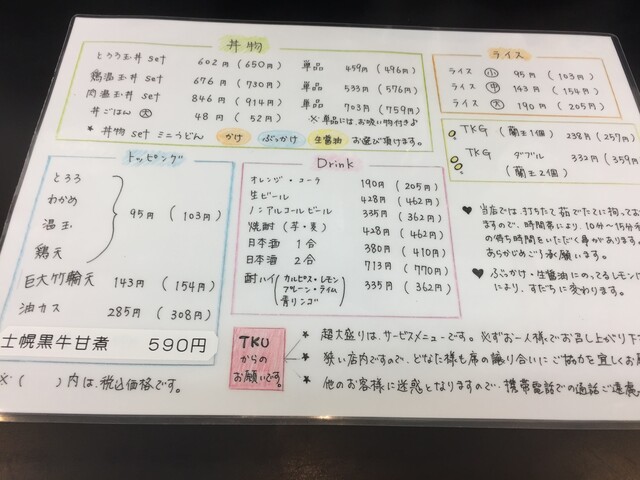 丼物
とろろ玉丼 set 602円 (650円) 単品 459円 (496円)
鶏温玉丼 set 676円 (730円) 単品 533円 (576円)
肉温玉丼 set 846円 (914円) 単品 703円 (759円)
丼ごはん 大 48円 (52円) ※単品には、お吸い物付きよ
* 丼物 set ミニうどん かけ ぶっかけ 生醤油 お選び頂けます。
ライス
ライス 小 95円 (103円)
ライス 中 143円 (154円)
ライス 大 190円 (205円)
TKG (蘭王1個) 238円 (257円)
TKG ダブル 332円 (359円)
(蘭王2個)
トッピング
とろろ
わかめ
温玉
鶏天
95円 (103円)
巨大竹輪天 143円 (154円)
油カス 285円 (308円)
士幌黒牛甘煮 590円
※( )内は、税込価格です。
Drink
オレンジ・コーラ 190円 (205円)
生ビール 428円 (462円)
ノンアルコールビール 335円 (362円)
焼酎 (芋・麦) 428円 (462円)
日本酒 1合 380円 (410円)
日本酒 2合 713円 (770円)
酎ハイ (カルピス・レモン プレーン・ライム 青リンゴ) 335円 (362円)
♥ 当店では、打ちたて茹でたてに拘ってお
ますので、時間帯により、10分〜15分
の待ち時間をいただく事があります
あらかじめご了承願います。
♥ ぶっかけ・生醤油にのってるレモンは
により、すだちに変わります。
TKU
からの
お願いです。
★ 超大盛りは、サービスメニューです。※ずお一人様でお召し上がり下
★ 狭い店内ですので、どなた様も席の譲り合いにご協力を宜しくお
★ 他のお客様に迷惑となりますので、携帯電話での通話ご遠慮